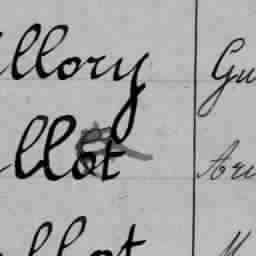 llory Gu
llot Ari
llot M